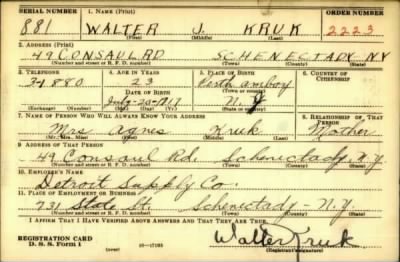 SERIAL NUMBER 1. NAME (Print) ORDER NUMBER
881 WALTER J. KRUK 2223
(First) (Middle) (Last)
2. ADDRESS (Print)
49 CONSAUL RD SCHENECTADY NY
(Number and street or R. F. D. number) (Town) (County) (State)
3. TELEPHONE 4. AGE IN YEARS 5. PLACE OF BIRTH 6. COUNTRY OF CITIZENSHIP
23 Perth amboy
DATE OF BIRTH (Town or county)
July-20-1917 N. J
(Exchange) (Number) (Mo.) (Day) (Yr.) (State or country)
7. NAME OF PERSON WHO WILL ALWAYS KNOW YOUR ADDRESS 8. RELATIONSHIP OF THAT PERSON
Mrs Agnes Kruk Mother
(Mr., Mrs., Miss) (First) (Middle) (Last)
9. ADDRESS OF THAT PERSON
49 Consaul Rd. Schenectady, N.Y.
(Number and street or R. F. D. number) (Town) (County) (State)
10. EMPLOYER'S NAME
Detroit Supply Co.
11. PLACE OF EMPLOYMENT OR BUSINESS
731 State St. Schenectady - N.Y.
(Number and street or R. F. D. number) (Town) (County) (State)
I AFFIRM THAT I HAVE VERIFIED ABOVE ANSWERS AND THAT THEY ARE TRUE.
REGISTRATION CARD
D. S. S. Form 1 Walter Kruk
(Registrant's signature)